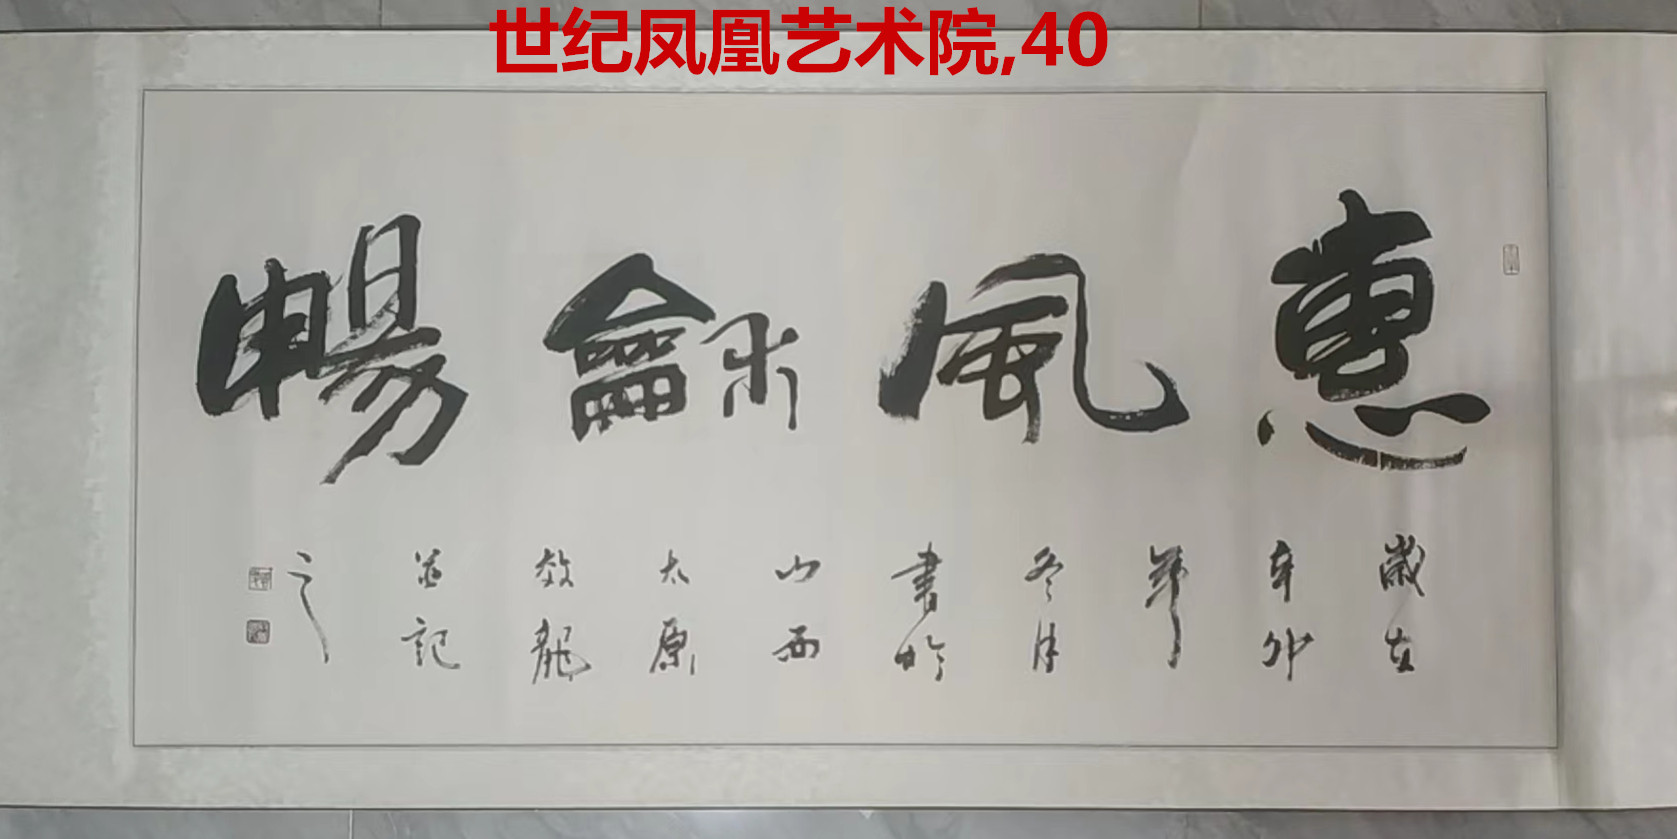 世纪凤凰艺术院,40
惠風龢暢
歲在
辛卯
年
冬月
書於
山西
太原
效龍
並記
之